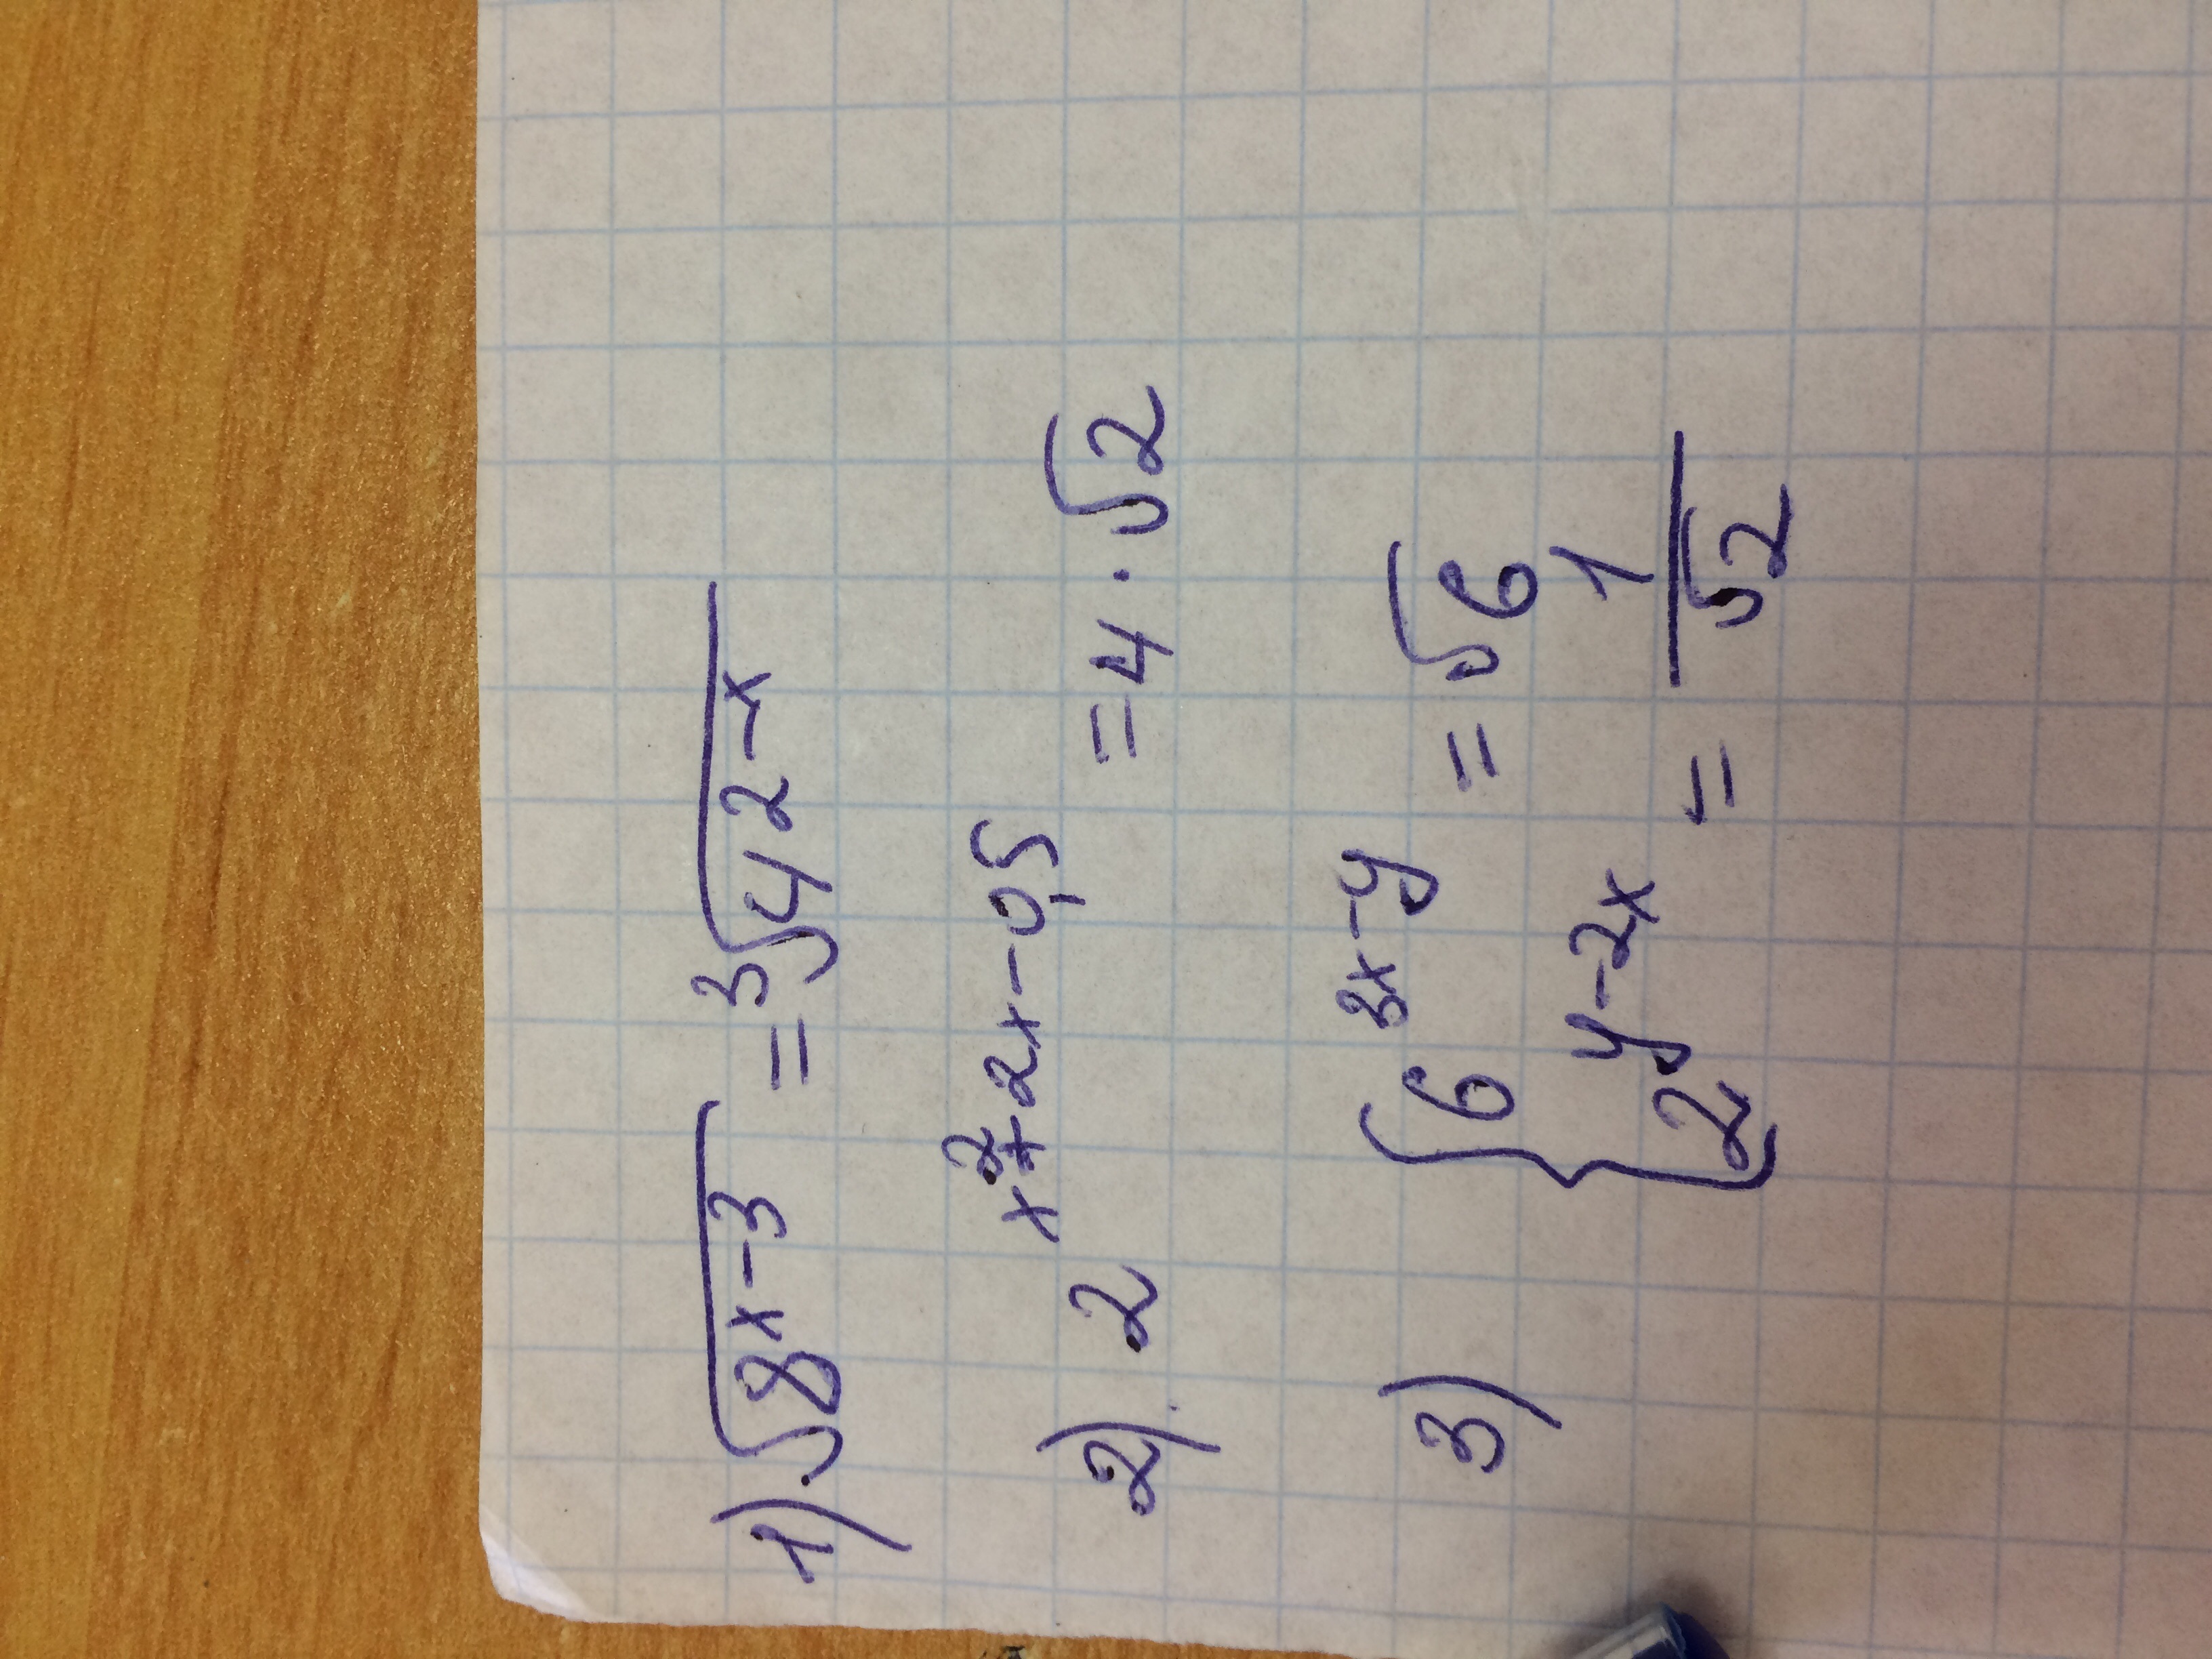 1) √8^(x-3) = ³√4^(2-x)
2) 2^(x²+2x-0,5) = 4·√2
3) { 6^(3x-y) = √6
2^(y-2x) = 1/√2